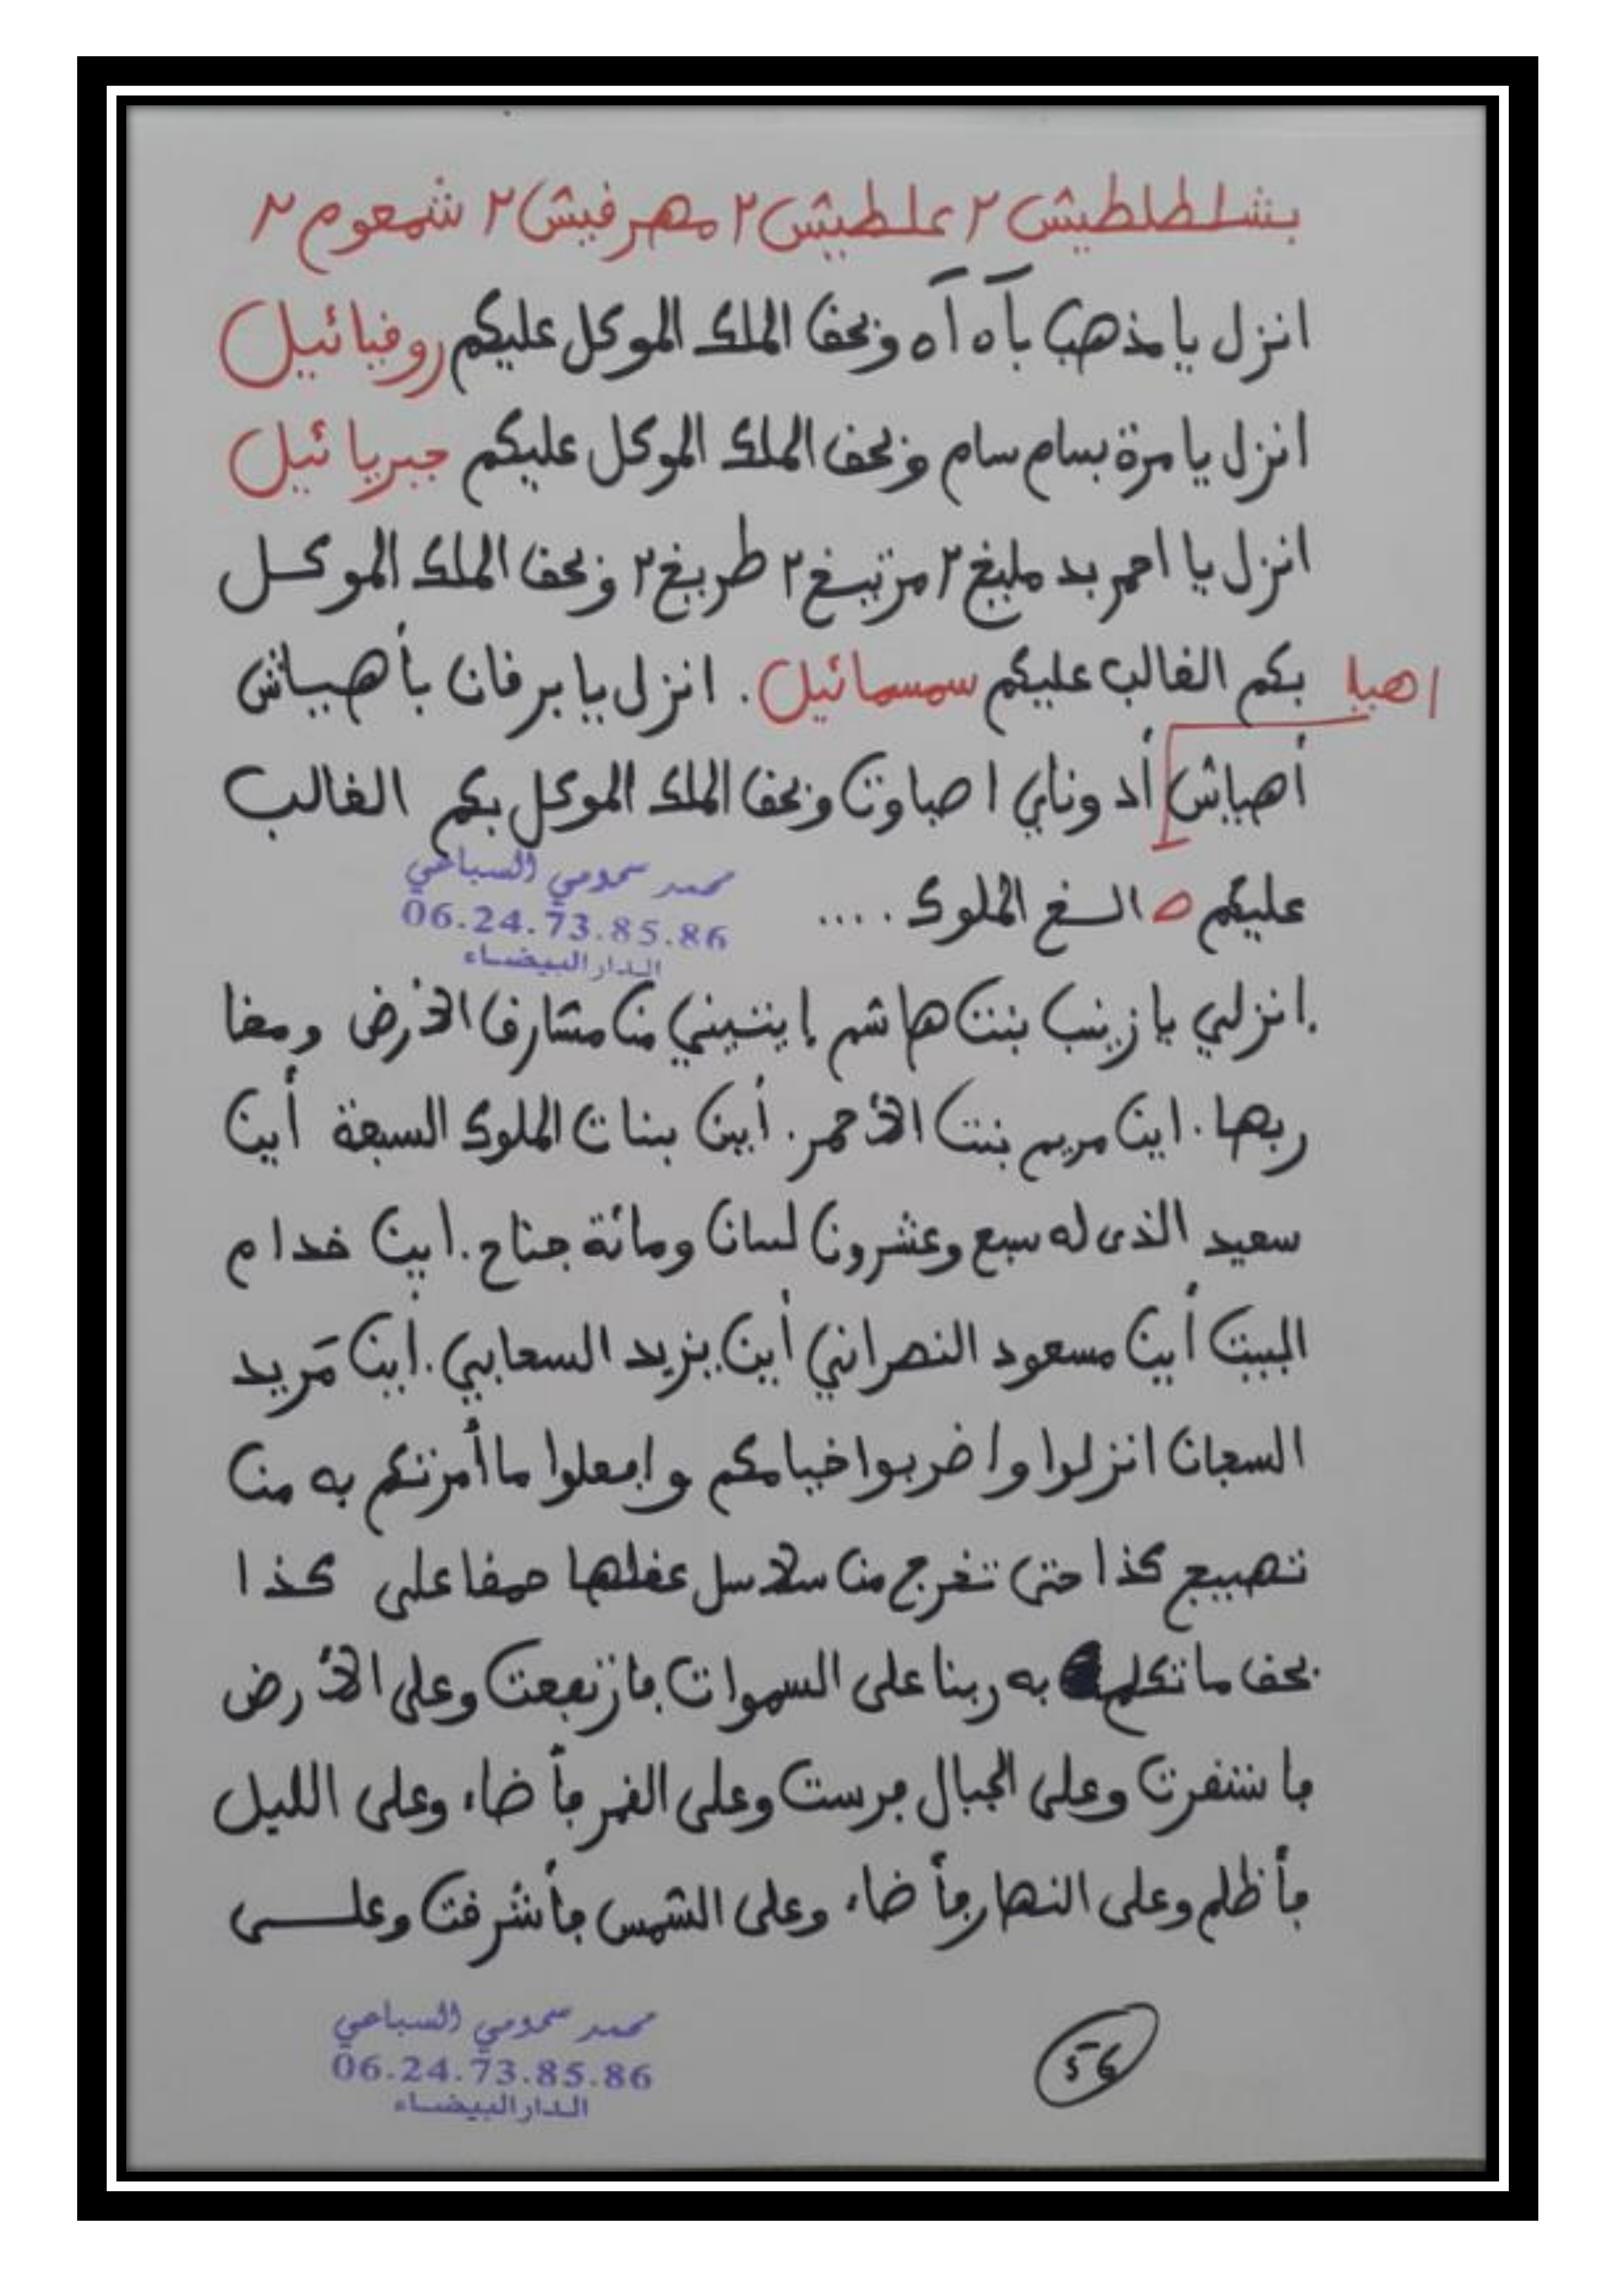 بشلطلطيش ٢ علطيش ٢ مهرفيش ٢ شمعوم ٢
انزل يا مذهب بآه آه وبحق الملك الموكل عليكم روفيائيل
انزل يا مرة بسام سام وبحق الملك الموكل عليكم جبريائيل
انزل يا احمر بد مليخ ٢ مرتيخ ٢ طريخ ٢ وبحق الملك الموكل
اهيا بكم الغالب عليكم سمسمائيل. انزل يا برقان بأهياش
أهياش أدوناي اصباوت وبحق الملك الموكل بكم الغالب
عليكم ه الخ الملوك ....
محمد سحومي السباعي
06.24.73.85.86
الدار البيضاء
.انزلي يا زينب بنت هاشم إيتيني من مشارق الأرض ومغا
ربها. اين مريم بنت الأحمر. أين بنات الملوك السبعة أين
سعيد الذى له سبع وعشرون لسان ومائة جناح. اين خدام
البيت أين مسعود النصراني أين يزيد السحابي. أين مَريد
السجان انزلوا واضربوا خيامكم وافعلوا ما أمرتكم به من
تهييج كذا حتى تخرج من سلاسل عقلها حمقا على كذا
بحق ما تكلم به ربنا على السموات فارتفعت وعلى الأرض
فاستقرت وعلى الجبال فرست وعلى القمر فأضاء وعلى الليل
فأظلم وعلى النهار فأضاء وعلى الشمس فأشرقت وعلى
محمد سحومي السباعي
06.24.73.85.86
الدار البيضاء
56